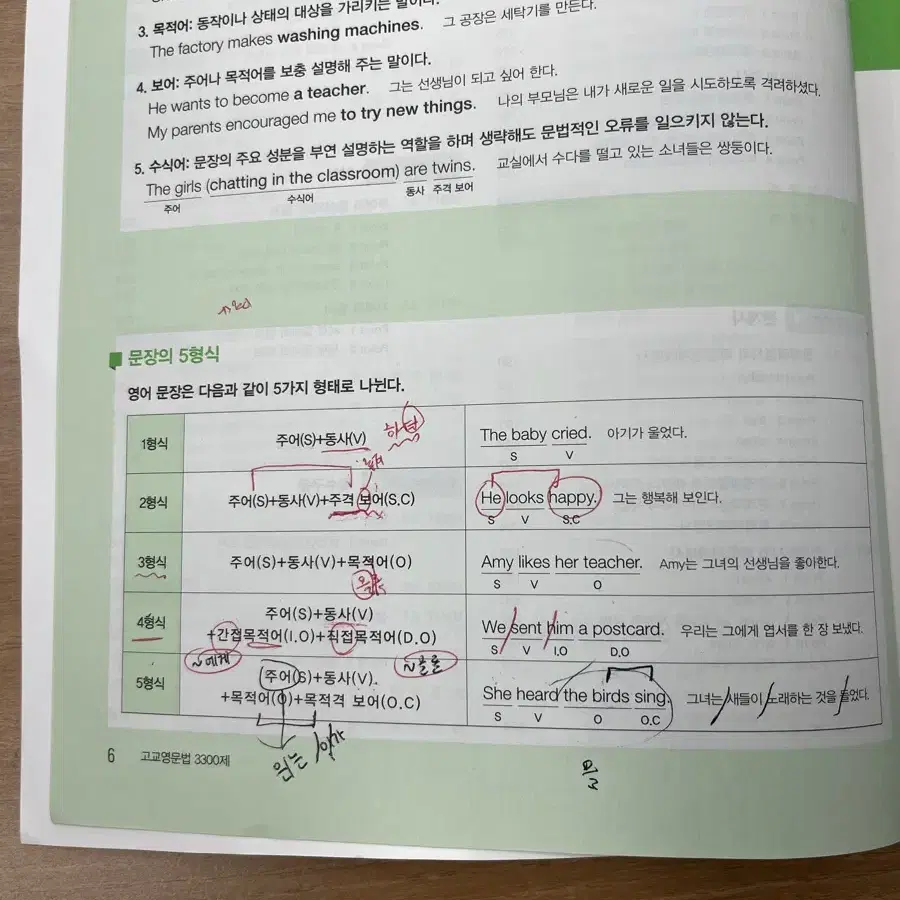 3. 목적어: 동작이나 상태의 대상을 가리키는 말이다.
The factory makes washing machines. 그 공장은 세탁기를 만든다.
4. 보어: 주어나 목적어를 보충 설명해 주는 말이다.
He wants to become a teacher. 그는 선생님이 되고 싶어 한다.
My parents encouraged me to try new things. 나의 부모님은 내가 새로운 일을 시도하도록 격려하셨다.
5. 수식어: 문장의 주요 성분을 부연 설명하는 역할을 하며 생략해도 문법적인 오류를 일으키지 않는다.
The girls (chatting in the classroom) are twins. 교실에서 수다를 떨고 있는 소녀들은 쌍둥이다.
주어 수식어 동사 주격 보어
문장의 5형식
영어 문장은 다음과 같이 5가지 형태로 나뉜다.
1형식 주어(S)+동사(V) The baby cried. 아기가 울었다.
S V
2형식 주어(S)+동사(V)+주격 보어(S.C) He looks happy. 그는 행복해 보인다.
S V S.C
3형식 주어(S)+동사(V)+목적어(O) Amy likes her teacher. Amy는 그녀의 선생님을 좋아한다.
S V O
4형식 주어(S)+동사(V)
+간접목적어(I.O)+직접목적어(D.O) We sent him a postcard. 우리는 그에게 엽서를 한 장 보냈다.
S V I.O D.O
~에게 ~을를
5형식 주어(S)+동사(V).
+목적어(O)+목적격 보어(O.C) She heard the birds sing. 그녀는 새들이 노래하는 것을 들었다.
S V O O.C
은는 이가
6 고교영문법 3300제